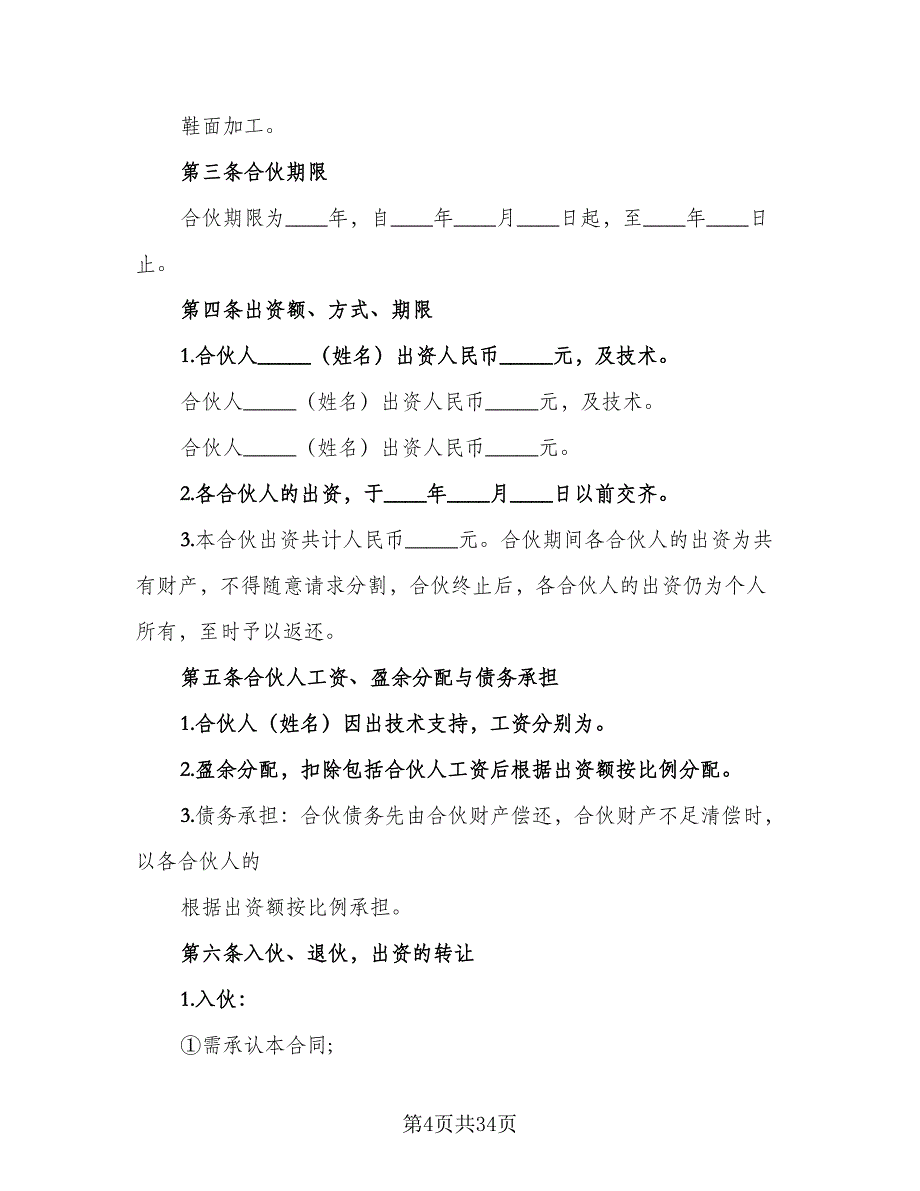 鞋面加工。
第三条合伙期限
合伙期限为____年，自____年____月____日起，至____年____日
止。
第四条出资额、方式、期限
1.合伙人_____（姓名）出资人民币_____元，及技术。
合伙人_____（姓名）出资人民币_____元，及技术。
合伙人_____（姓名）出资人民币_____元。
2.各合伙人的出资，于____年____月____日以前交齐。
3.本合伙出资共计人民币_____元。合伙期间各合伙人的出资为共
有财产，不得随意请求分割，合伙终止后，各合伙人的出资仍为个人
所有，至时予以返还。
第五条合伙人工资、盈余分配与债务承担
1.合伙人（姓名）因出技术支持，工资分别为。
2.盈余分配，扣除包括合伙人工资后根据出资额按比例分配。
3.债务承担：合伙债务先由合伙财产偿还，合伙财产不足清偿时，
以各合伙人的
根据出资额按比例承担。
第六条入伙、退伙，出资的转让
1.入伙：
①需承认本合同;
第4页共34页